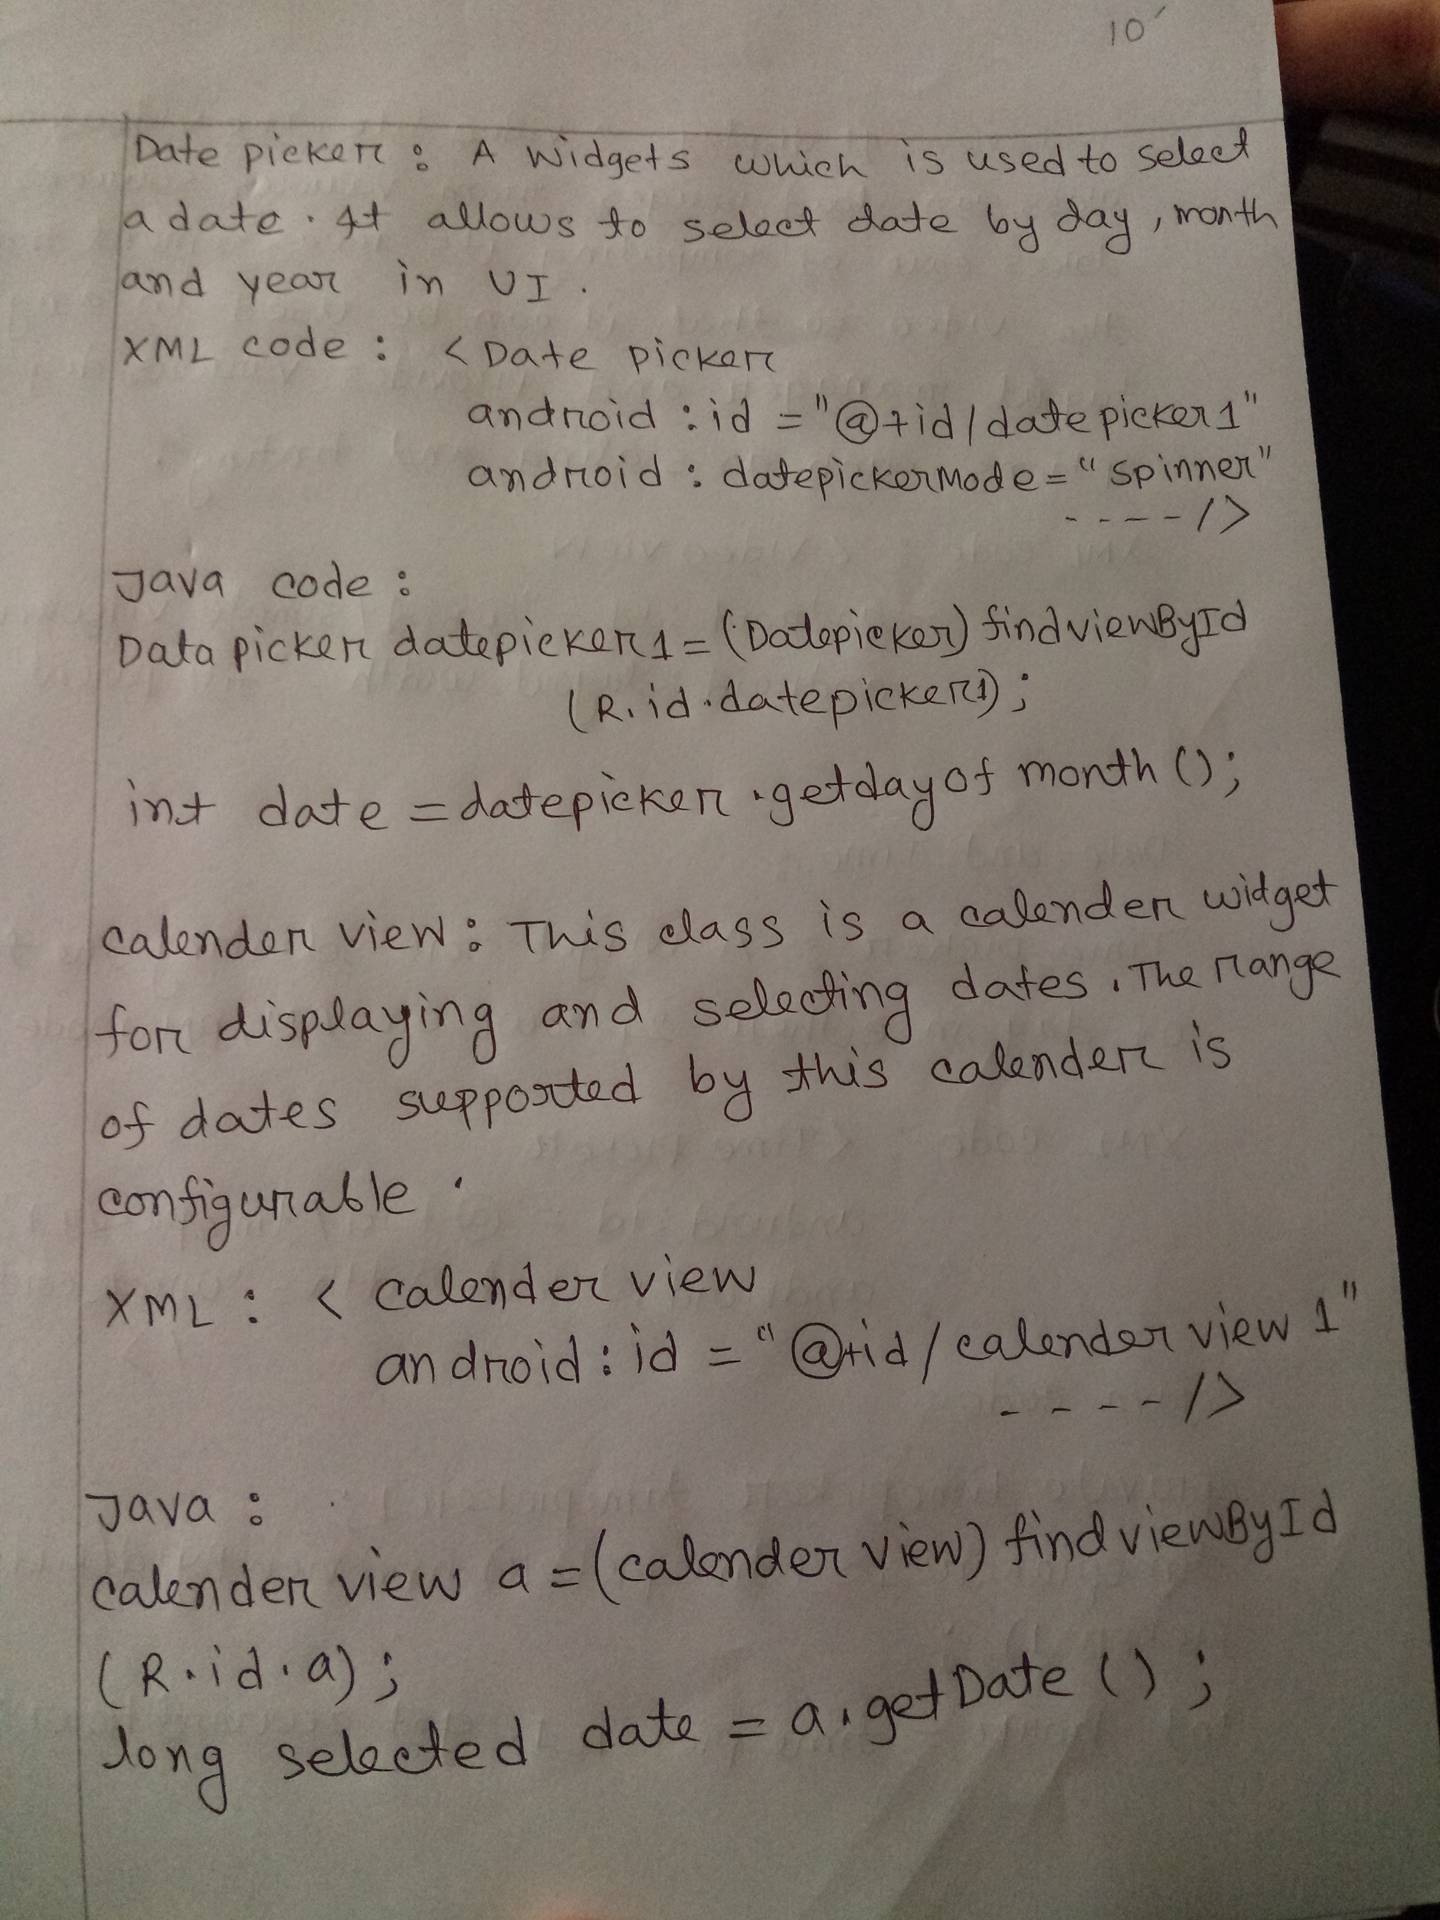 10
Date picker : A Widgets which is used to select
a date. It allows to select date by day, month
and year in UI.
XML code : < Date picker
android : id = "@+id/datepicker1"
android : datepickerMode = "spinner"
----/>
Java code :
Data picker datepicker1 = (Datepicker) findviewById
(R.id.datepicker1);
int date = datepicker.getdayof month();
calender view : This class is a calender widget
for displaying and selecting dates. The range
of dates supported by this calender is
configurable.
XML : < calender view
android : id = "@+id/calender view 1"
----/>
Java :
calender view a = (calender view) findviewById
(R.id.a);
long selected date = a.getDate();